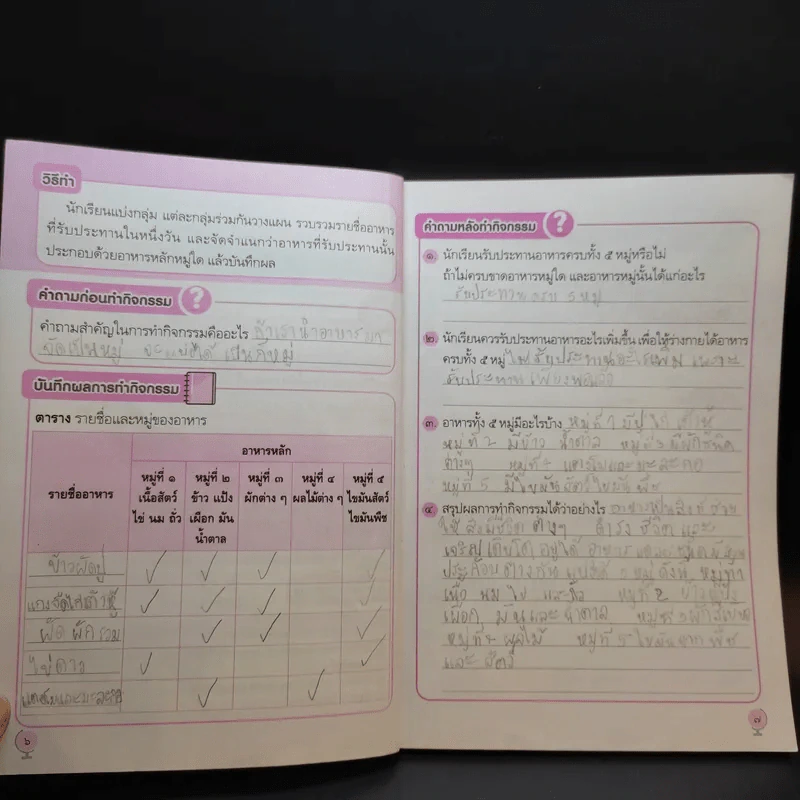 วิธีทำ
นักเรียนแบ่งกลุ่ม แต่ละกลุ่มร่วมกันวางแผน รวบรวมรายชื่ออาหาร
ที่รับประทานในหนึ่งวัน และจัดจำแนกว่าอาหารที่รับประทานนั้น
ประกอบด้วยอาหารหลักหมู่ใด แล้วบันทึกผล
คำถามก่อนทำกิจกรรม ?
คำถามสำคัญในการทำกิจกรรมคืออะไร ถ้าเรานำอาหารมา
จัดเป็นหมู่ จะแบ่งได้ เป็นกี่หมู่
บันทึกผลการทำกิจกรรม
ตาราง รายชื่อและหมู่ของอาหาร
รายชื่ออาหาร
อาหารหลัก
หมู่ที่ ๑ เนื้อสัตว์ ไข่ นม ถั่ว
หมู่ที่ ๒ ข้าว แป้ง เผือก มัน น้ำตาล
หมู่ที่ ๓ ผักต่าง ๆ
หมู่ที่ ๔ ผลไม้ต่าง ๆ
หมู่ที่ ๕ ไขมันสัตว์ ไขมันพืช
ข้าวผัดปู ✓ ✓ ✓ ✓
แกงจืดไก่เต้าหู้ ✓ ✓ ✓ ✓
ผัดผักรวม ✓ ✓ ✓
ไข่ดาว ✓ ✓
แตงโมและมะละกอ ✓ ✓
๖
คำถามหลังทำกิจกรรม ?
๑ นักเรียนรับประทานอาหารครบทั้ง ๕ หมู่หรือไม่
ถ้าไม่ครบขาดอาหารหมู่ใด และอาหารหมู่นั้นได้แก่อะไร
รับประทาน ครบ 5 หมู่
๒ นักเรียนควรรับประทานอาหารอะไรเพิ่มขึ้น เพื่อให้ร่างกายได้อาหาร
ครบทั้ง ๕ หมู่ ไม่รับประทานอะไรเพิ่ม เพราะ
รับประทาน เพียงพอแล้ว
๓ อาหารทั้ง ๕ หมู่มีอะไรบ้าง หมู่ที่ 1 มีปู ไก่ เต้าหู้
หมู่ที่ 2 มีข้าว น้ำตาล หมู่ที่ 3 มีผักชนิด
ต่างๆ หมู่ที่ 4 แตงโมและมะละกอ
หมู่ที่ 5 มีไขมันสัตว์ ไขมันพืช
๔ สรุปผลการทำกิจกรรมได้ว่าอย่างไร อาหารเป็นสิ่งที่ช่วย
ให้ สิ่งมีชีวิต ต่างๆ ดำรง ชีวิต และ
เจริญเติบโต อยู่ได้ อาหาร
ประกอบ ต่างกัน แบ่งได้ 5 หมู่ ดังนี้ หมู่ที่ 1
เนื้อ นม ไข่ และถั่ว หมู่ที่ 2 ข้าว แป้ง
เผือก มัน และ น้ำตาล หมู่ที่ 3 ผัก
หมู่ที่ 4 ผลไม้ หมู่ที่ 5 ไขมันจาก พืช
และ สัตว์
๗